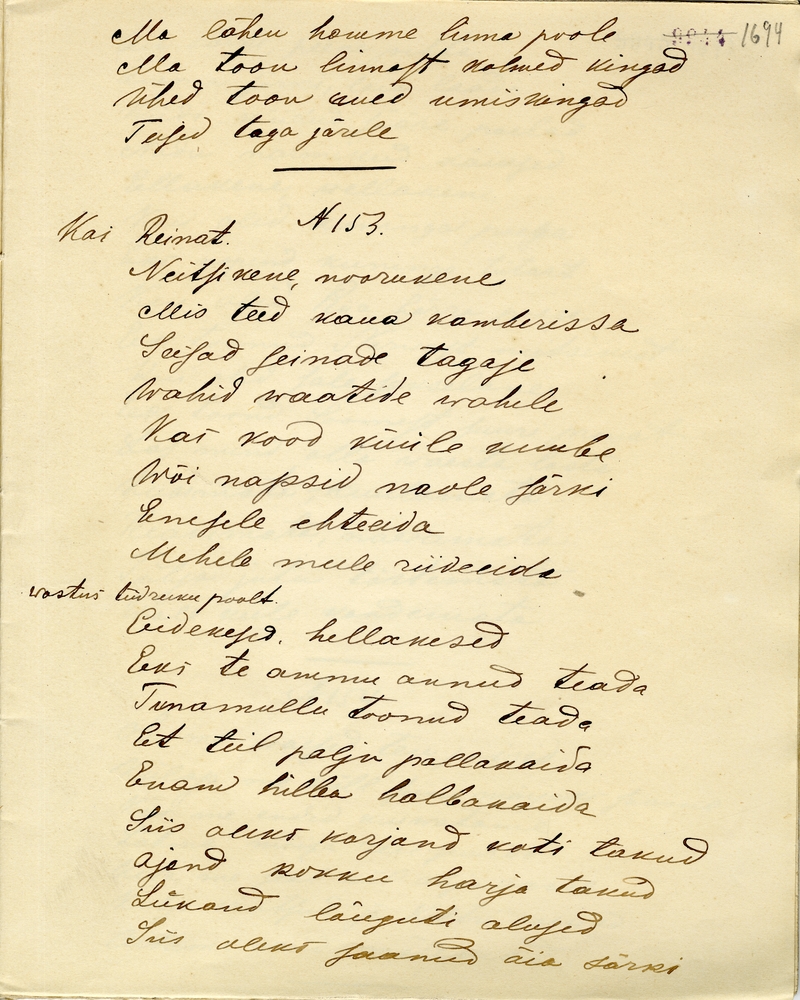 Ma lähen homme linna poole 1694
Ma toon linnast kolmed kingad
Ühed toon uued umiskingad
Teised taga järele
Kai Reinat. N 153.
Neitsikene, noorukene
Mis teed kaua kamberissa
Seisad seinade tagaje
Wahid waatide wahele
Kas kood küüle kuube
Wõi napsid naole särki
Enesele ehteeida
Mehele meele riideeida
wastus tüdruku poolt.
Eidekesed, hellakesed
Eks te ammu annud teada
Tunamullu toonud teada
Et teil palju pallakaida
Enam hilba halbakaida
Siis oleks karjand koti takud
ajand kokku harja takud
Lükand lõuguti alused
Siis oleks saanud äia särki